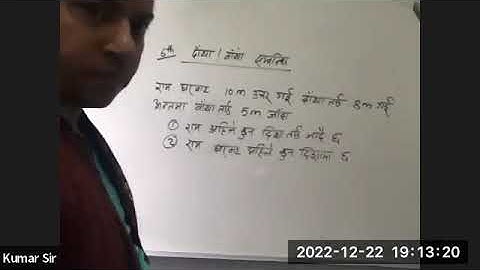 5th दायाँ / बायाँ सम्बन्धि
राम घरबाट 10m उत्तर गई बायाँ तर्फ 8m गई
अन्तमा बायाँ तर्फ 5m जाँदा
① राम अहिले कुन दिशा तर्फ जाँदै छ
② राम घरबाट अहिले कुन दिशामा छ
Kumar Sir
2022-12-22 19:13:20